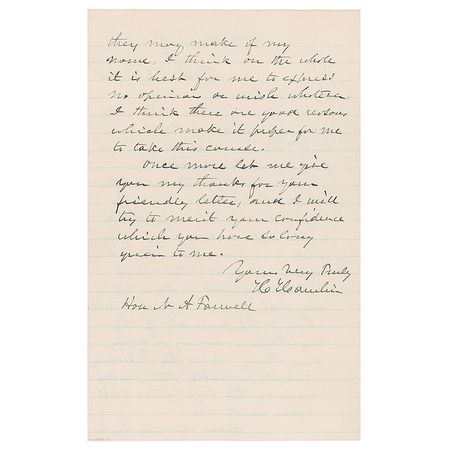 they may make of my
name. I think on the whole
it is best for me to express
no opinion or wish whatever.
I think there are good reasons
which make it proper for me
to take this course.
Once more let me give
you my thanks for your
friendly letter, and I will
try to merit your confidence
which you have so long
given to me.
Yours Very Truly
H Hamlin
Hon N A Farwell